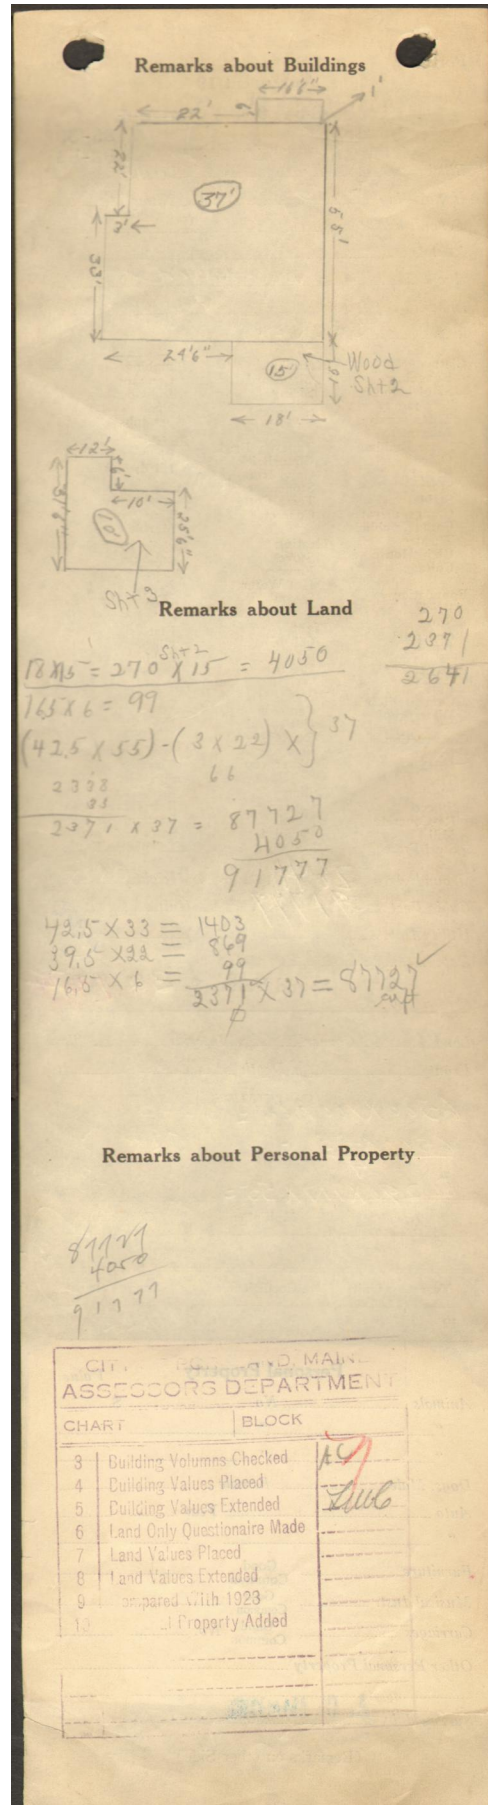 Remarks about Buildings
16'6"
1'
22'
6'
22'
37'
55'
3'
33'
24'6"
15'
Wood
Sht 2
18'
12'
6'
10'
31'6"
10'
25'6"
Sht 3
Remarks about Land
270
2371
2641
Sht 2
18 x 15 = 270 x 15 = 4050
16.5 x 6 = 99
(42.5 x 55) - (3 x 22) x } 37
66
2371 x 37 = 87727
4050
91777
42.5 x 33 = 1403
39.5 x 22 = 869
16.5 x 6 = 99
2371 x 37 = 87727 ✓
Remarks about Personal Property
87727
4050
91777
ASSESSORS DEPARTMENT
CHART BLOCK
3 Building Volumns Checked
4 Building Values Placed
5 Building Values Extended
6 Land Only Questionaire Made
7 Land Values Placed
8 Land Values Extended
9 Compared With 1923
10 Property Added